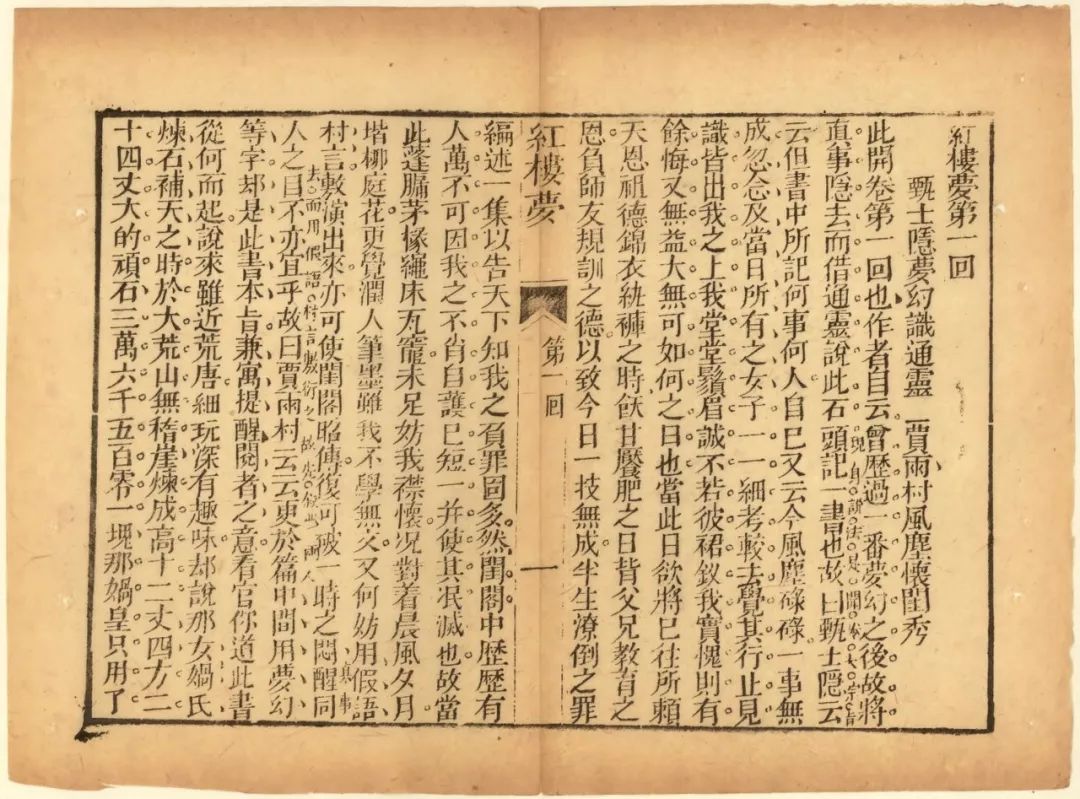 紅樓夢第一回
甄士隱夢幻識通靈　賈雨村風塵懷閨秀
此開卷第一回也作者自云曾歷過一番夢幻之後故將
現身說法是開卷大
眞事隱去而借通靈說此石頭記一書也故曰甄士隱云
云但書中所記何事何人自己又云今風塵碌碌一事無
成忽念及當日所有之女子一一細考較去覺其行止見
識皆出我之上我堂堂鬚眉誠不若彼裙釵我實愧則有
餘悔又無益大無可如何之日也當此日欲將已往所賴
天恩祖德錦衣紈褲之時飫甘饜肥之日背父兄教育之
恩負師友規訓之德以致今日一技無成半生潦倒之罪
紅樓夢
第一回
一
編述一集以告天下知我之負罪固多然閨閣中歷歷有
人萬不可因我之不肖自護己短一并使其泯滅也故當
此蓬牖茅椽繩床瓦竈未足妨我襟懷况對着晨風夕月
堦柳庭花更覺潤人筆墨雖我不學無文又何妨用假語
村言敷演出來亦可使閨閣昭傳復可破一時之悶醒同
眞事
去而用假語村言敷衍之故先叙此兩人
人之目不亦宜乎故曰賈雨村云云更於篇中間用夢幻
等字却是此書本旨兼寓提醒閱者之意看官你道此書
從何而起說來雖近荒唐細玩深有趣味却說那女媧氏
煉石補天之時於大荒山無稽崖煉成高十二丈四方二
十四丈大的頑石三萬六千五百零一塊那媧皇只用了